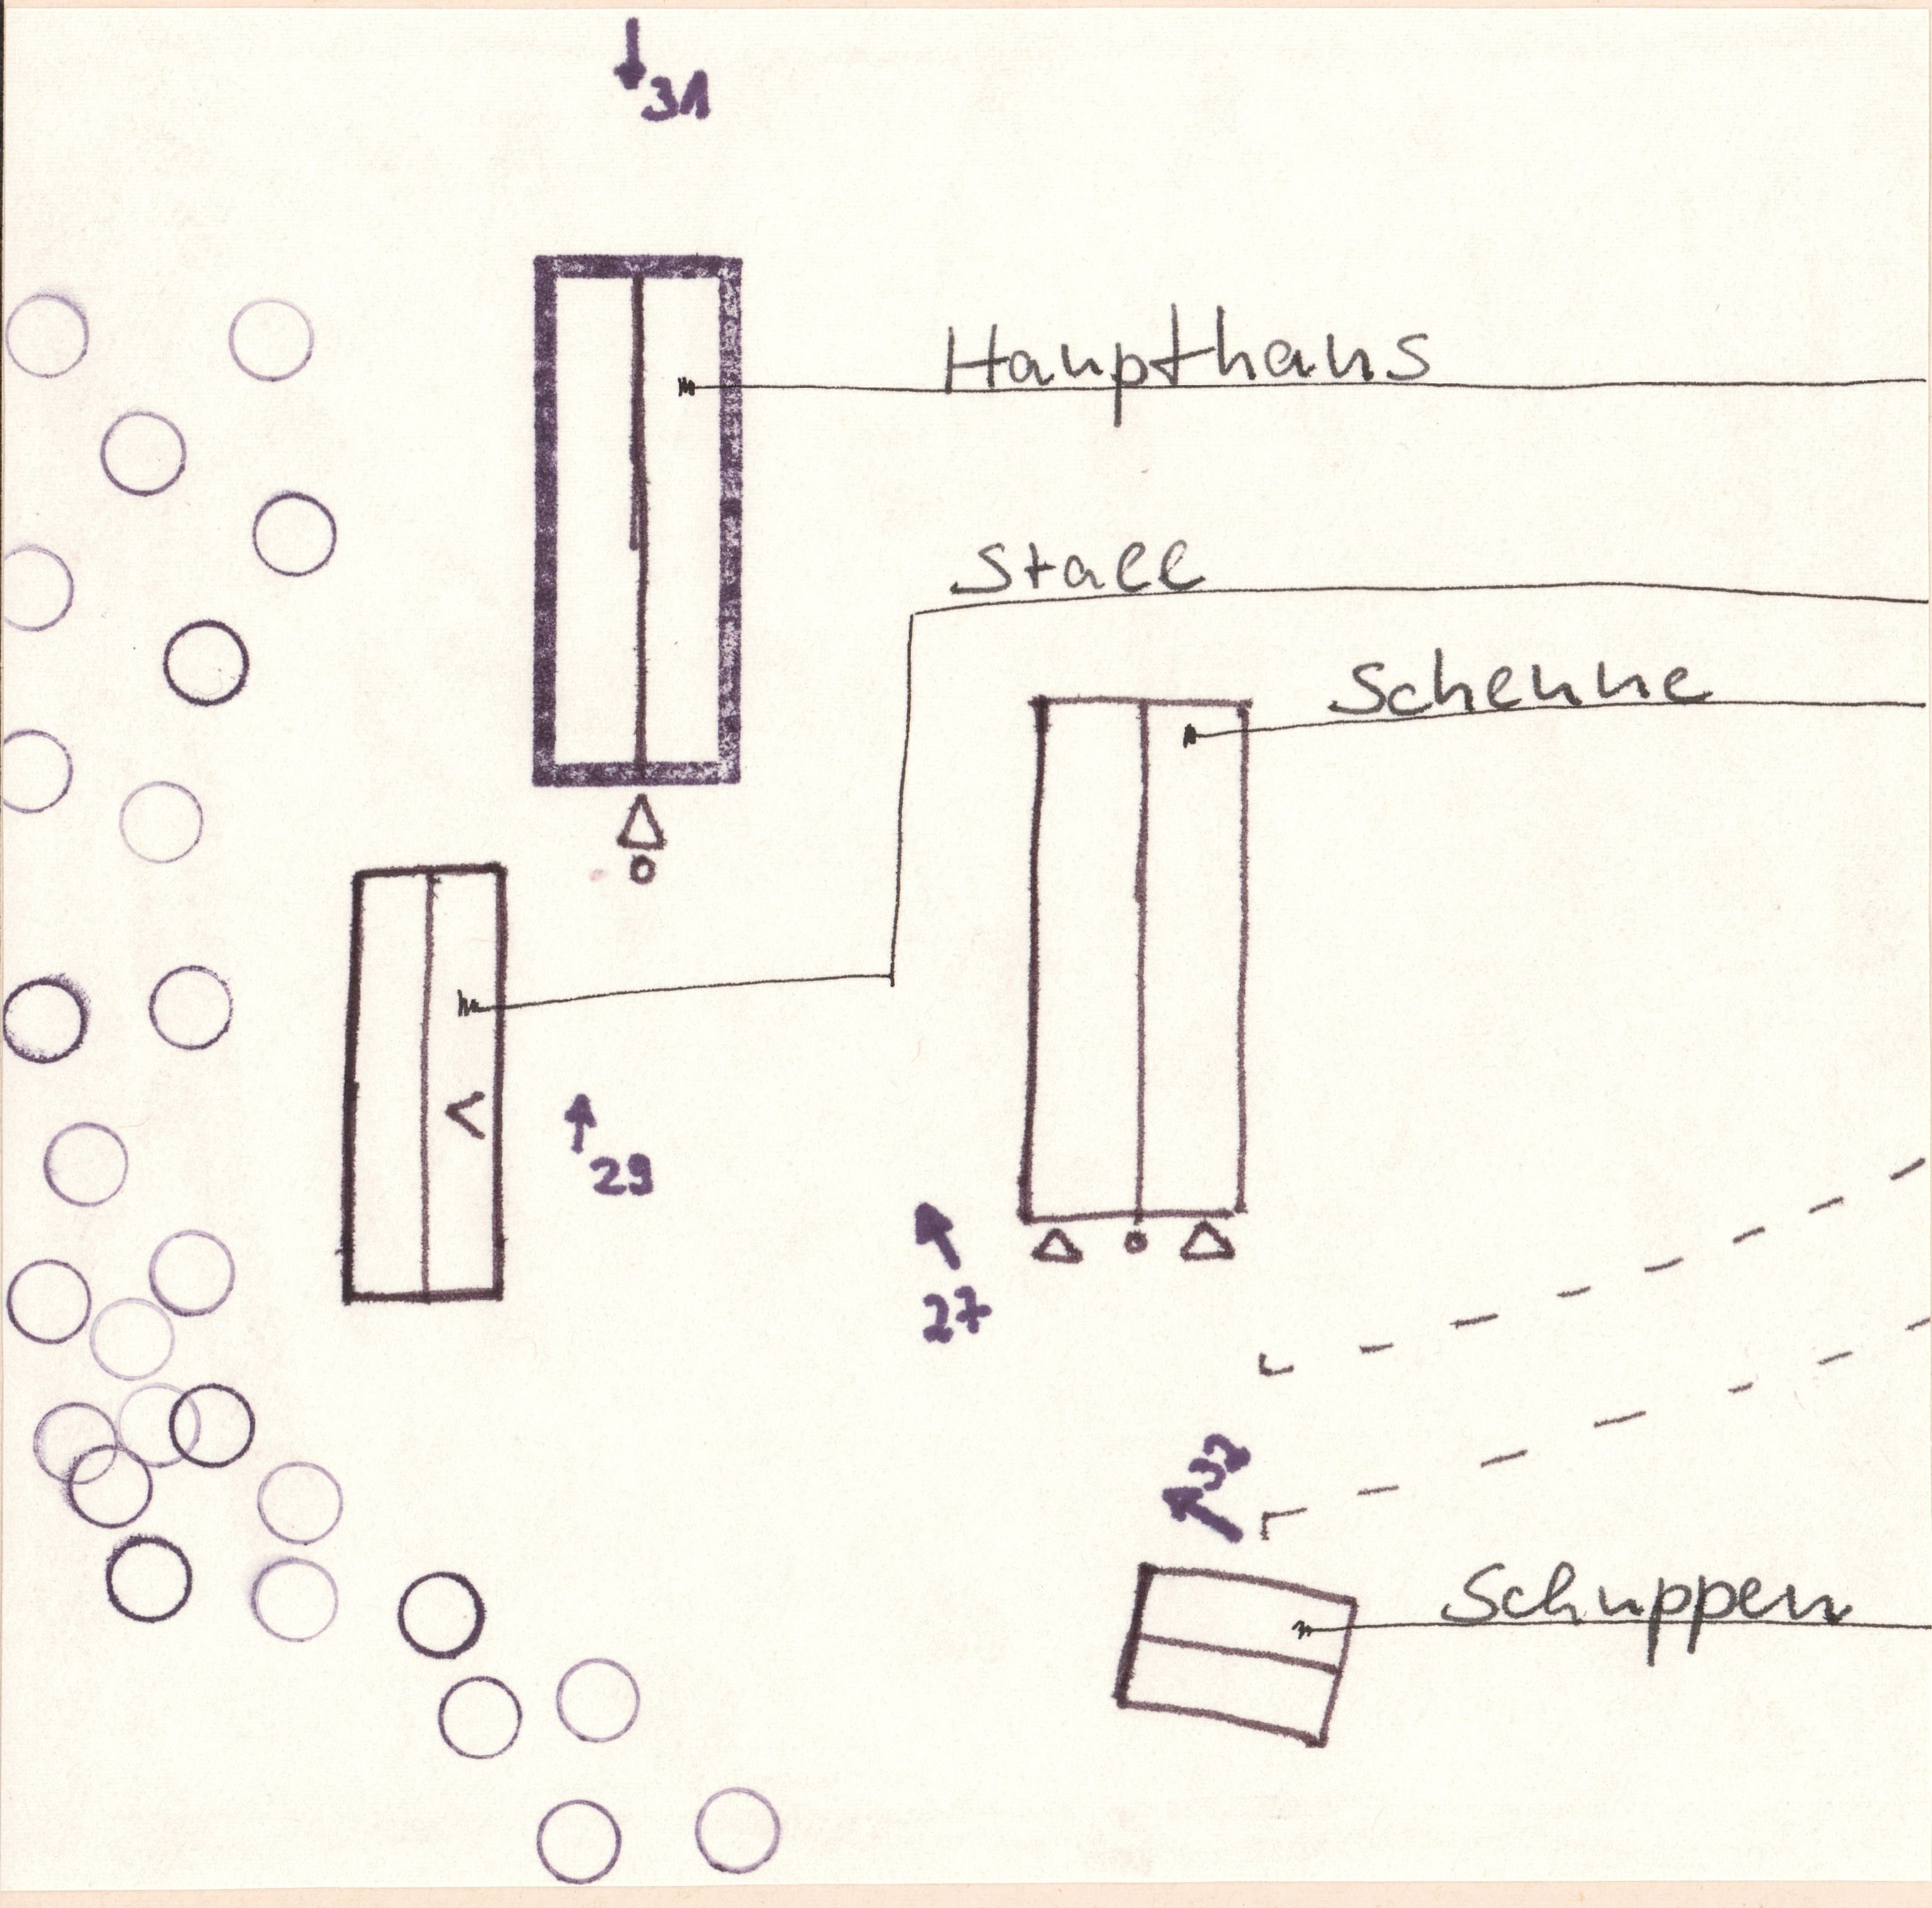 31
Haupthaus
Stall
Scheune
29
27
32
Schuppen